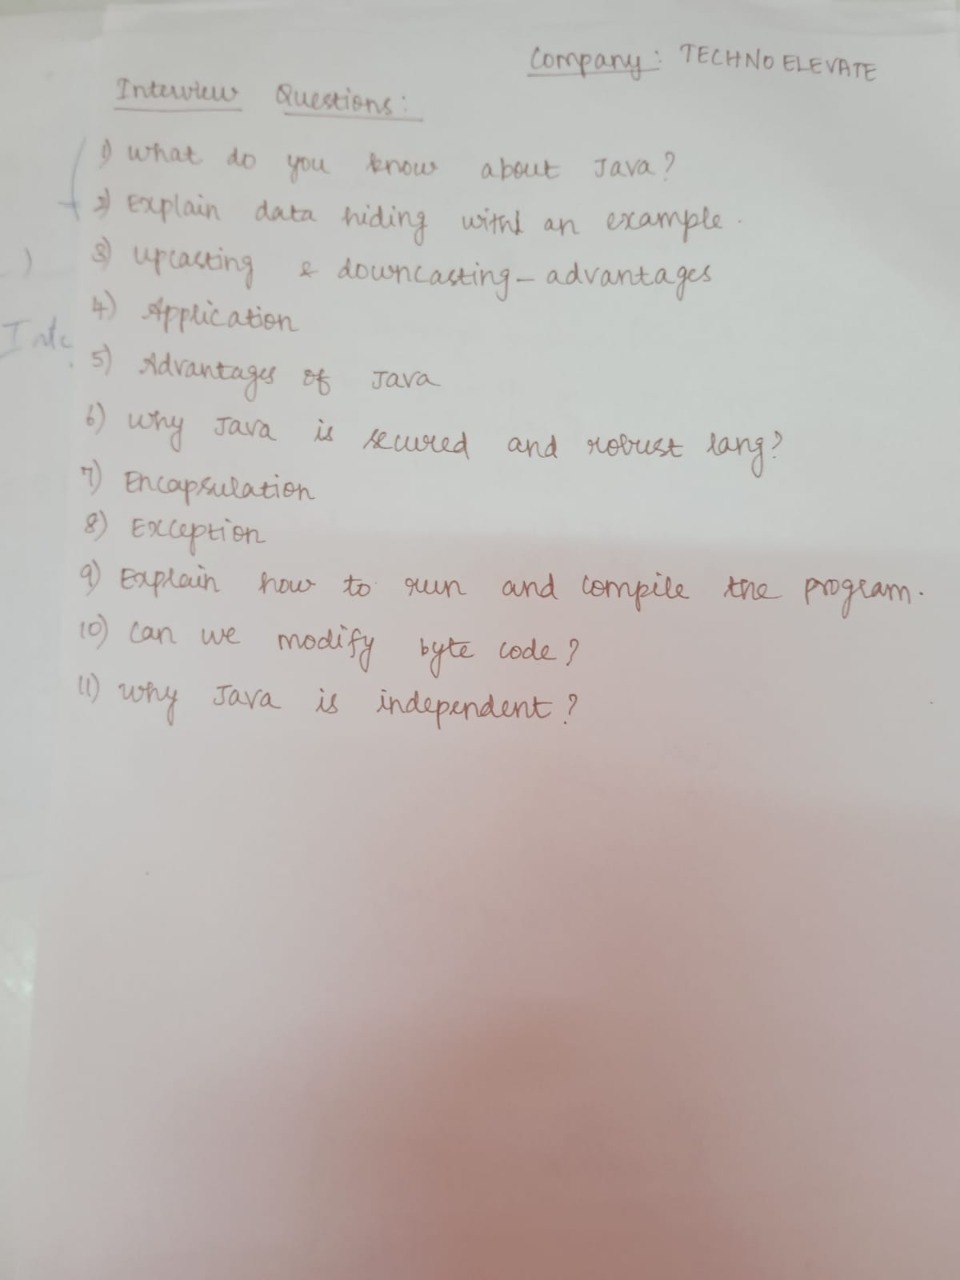 Company: TECHNO ELEVATE
Interview Questions:
1) What do you know about Java?
2) Explain data hiding with an example.
3) Upcasting & downcasting - advantages
4) Application
5) Advantages of Java
6) Why Java is secured and robust lang?
7) Encapsulation
8) Exception
9) Explain how to run and compile the program.
10) Can we modify byte code?
11) Why Java is independent?